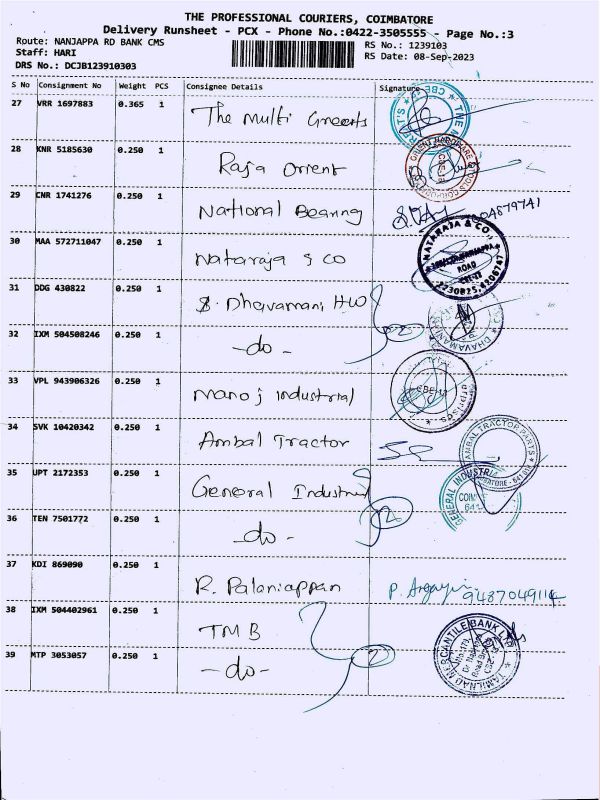 THE PROFESSIONAL COURIERS, COIMBATORE
Delivery Runsheet - PCX - Phone No.:0422-3505555 - Page No.:3
Route: NANJAPPA RD BANK CMS
RS No.: 1239103
Staff: HARI
RS Date: 08-Sep-2023
DRS No.: DCJB123910303
S No Consignment No Weight PCS Consignee Details Signature
27 VRR 1697883 0.365 1 The Multi Greeets
28 KNR 5185630 0.250 1 Raja Orient
29 CNR 1741276 0.250 1 National Bearing
30 MAA 572711047 0.250 1 Nataraja & CO
NATARAJA & CO.,
ROAD
31 DDG 430822 0.250 1 S. Dhavamani H/W
32 IXM 504508246 0.250 1 -do- 2
33 VPL 943906326 0.250 1 Manoj industrial
34 SVK 10420342 0.250 1 Ambal Tractor
AMBAL TRACTOR PARTS
35 UPT 2172353 0.250 1 General Industrial
GENERAL INDUSTRIA
36 TEN 7501772 0.250 1 -do- 2
37 KDI 869090 0.250 1 R. Palaniappan
38 IXM 504402961 0.250 1 TMB
TAMILNAD MERCANTILE BANK LTD
39 MTP 3053057 0.250 1 -do- 2